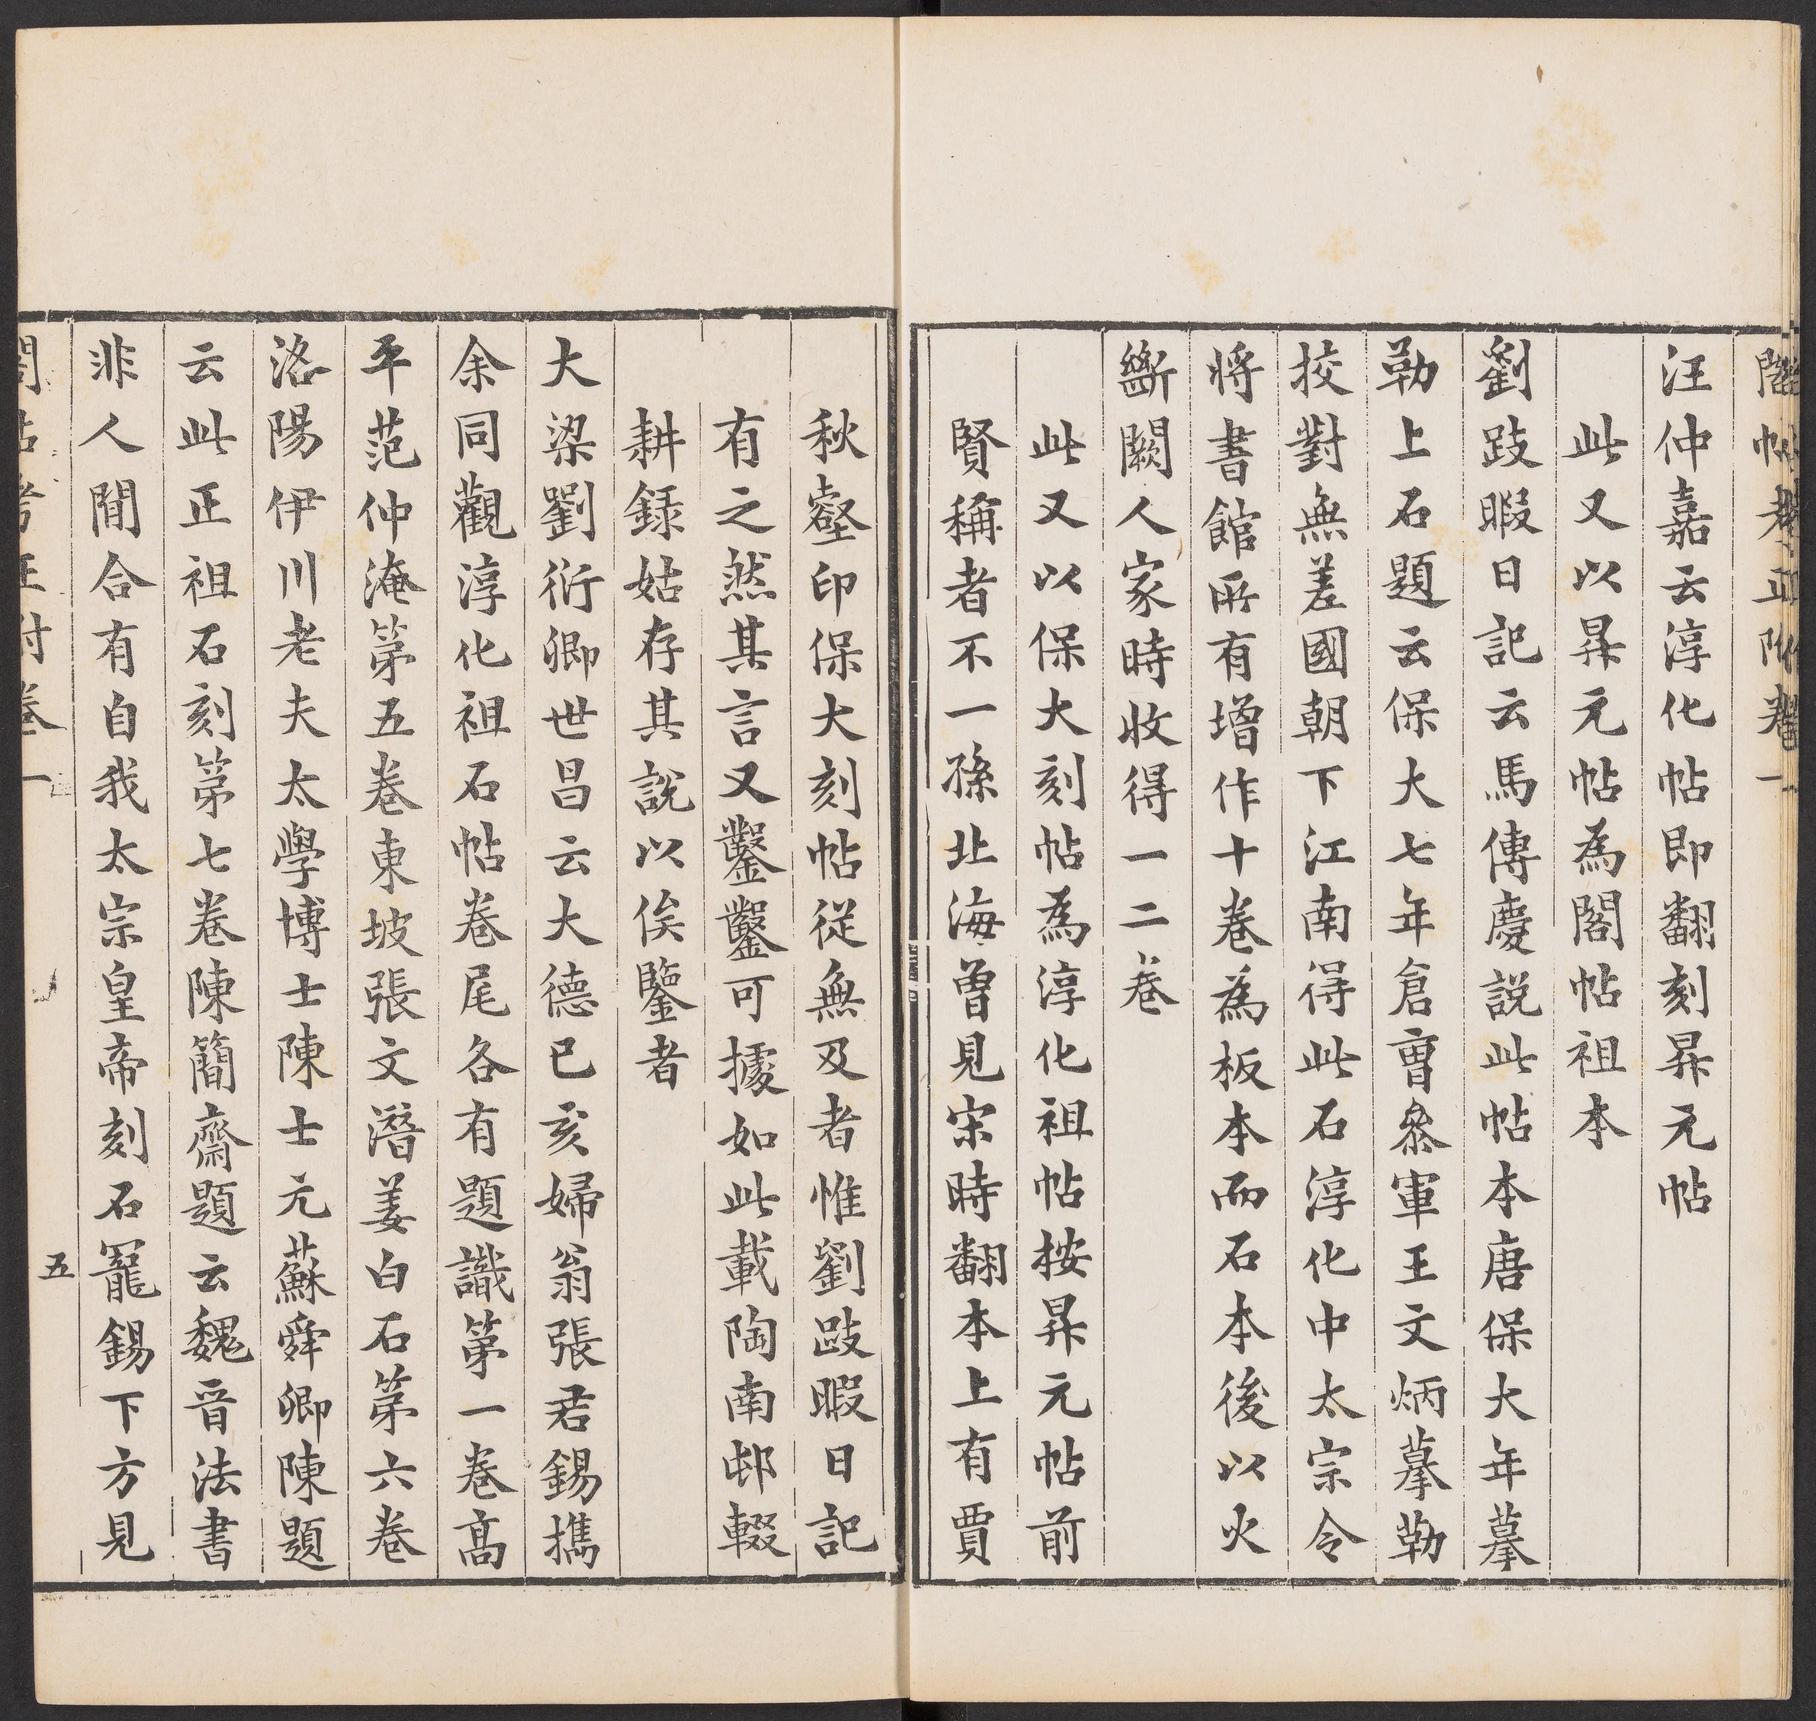 閣帖考正附卷一
汪仲嘉云淳化帖即翻刻昇元帖
此又以昇元帖為閣帖祖本
劉跂暇日記云馬傳慶説此帖本唐保大年摹
勒上石題云保大七年倉曹叅軍王文炳摹勒
挍對無差國朝下江南得此石淳化中太宗令
將書館所有增作十卷為板本而石本後以火
斷闕人家時收得一二卷
此又以保大刻帖為淳化祖帖按昇元帖前
賢稱者不一孫北海曾見宋時翻本上有賈
秋壑印保大刻帖從無及者惟劉跂暇日記
有之然其言又鑿鑿可據如此載陶南邨輟
耕録姑存其說以俟鑒者
大梁劉衍卿世昌云大德已亥婦翁張君錫攜
余同觀淳化祖石帖卷尾各有題識第一卷高
平范仲淹第五卷東坡張文潛姜白石第六卷
洛陽伊川老夫太學博士陳士元蘇舜卿陳題
云此正祖石刻第七卷陳簡齋題云魏晉法書
非人間合有自我太宗皇帝刻石寵錫下方見
閣帖考正附卷一
五